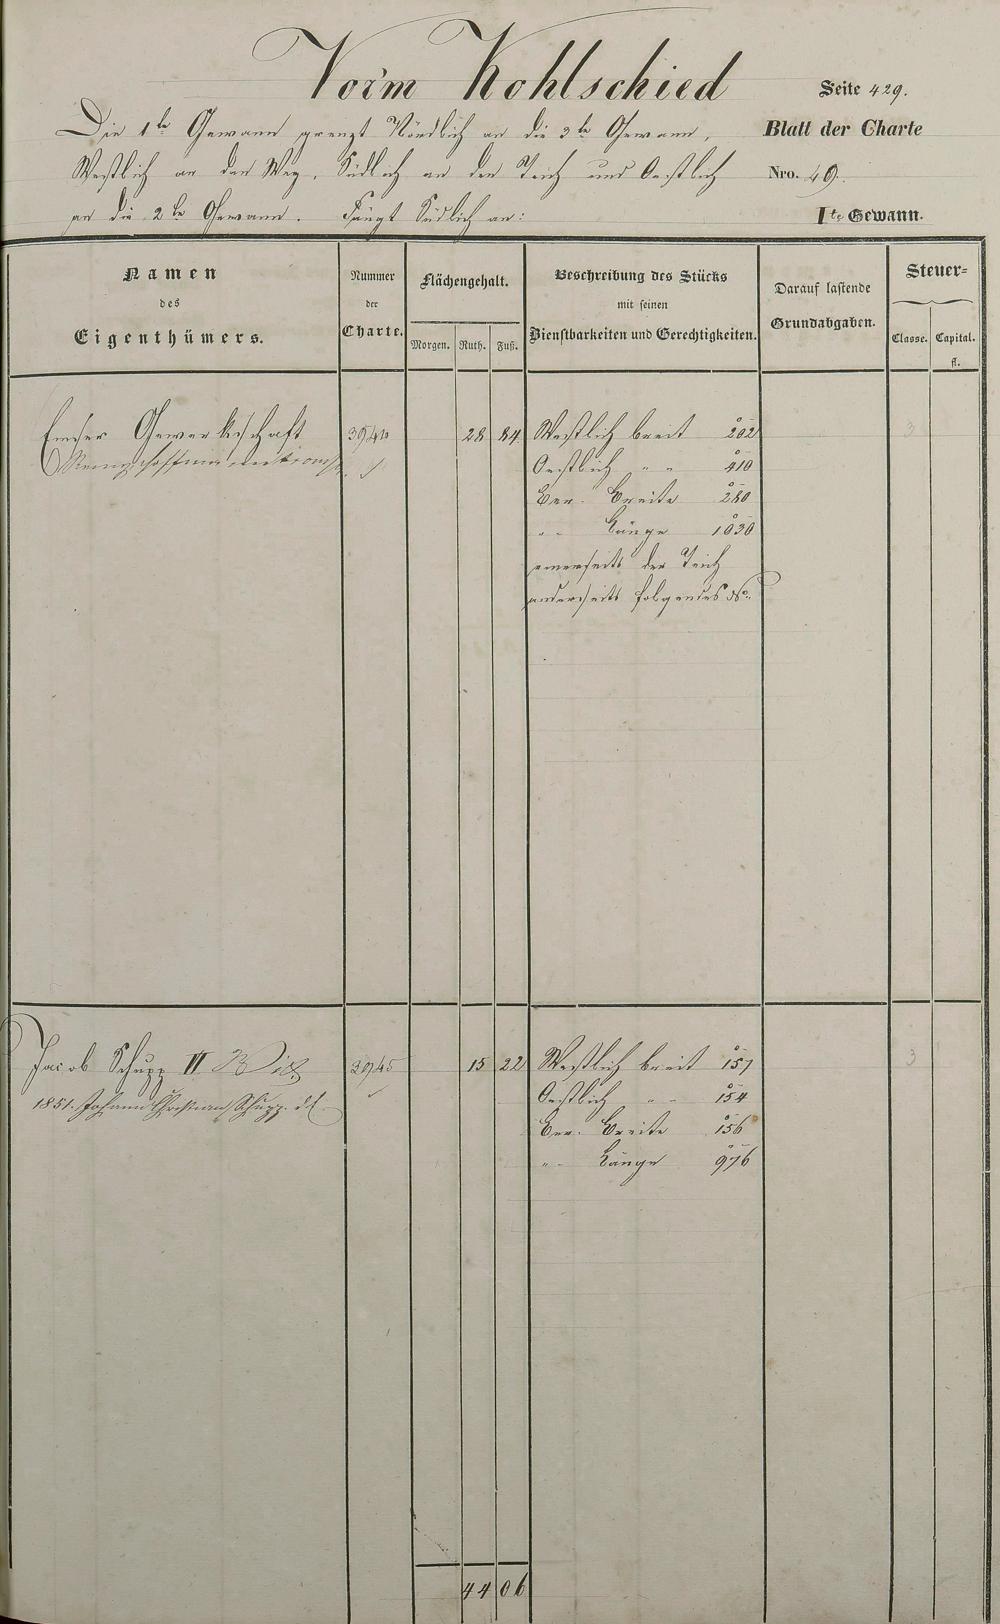 Vor'm Kohlschied
Seite 429.
Die 1te Gewann grenzt Nördlich an die 3te Gewann,
Blatt der Charte
Westlich an den Weg, Südlich an den Teich und Oestlich
Nro. 49.
an die 2te Gewann. Fängt Südlich an:
1te Gewann.
Namen
des
Eigenthümers.
Nummer
der
Charte.
Flächengehalt.
Morgen. Ruth. Fuß.
Beschreibung des Stücks
mit seinen
Dienstbarkeiten und Gerechtigkeiten.
Darauf lastende
Grundabgaben.
Steuer-
Classe. Capital.
fl.
Emser Gewerkschaft 3944 28 84 Westlich breit 202 3
Oestlich " " 410
Ver. Breite 280
" Länge 1030
einerseits der Teich
anderseits folgendes
Jacob Schupp VI 3945 15 22 Westlich breit 157 3
1851. Johann Christian Schupp
Oestlich " " 154
Ver. Breite 156
" Länge 976
44 06